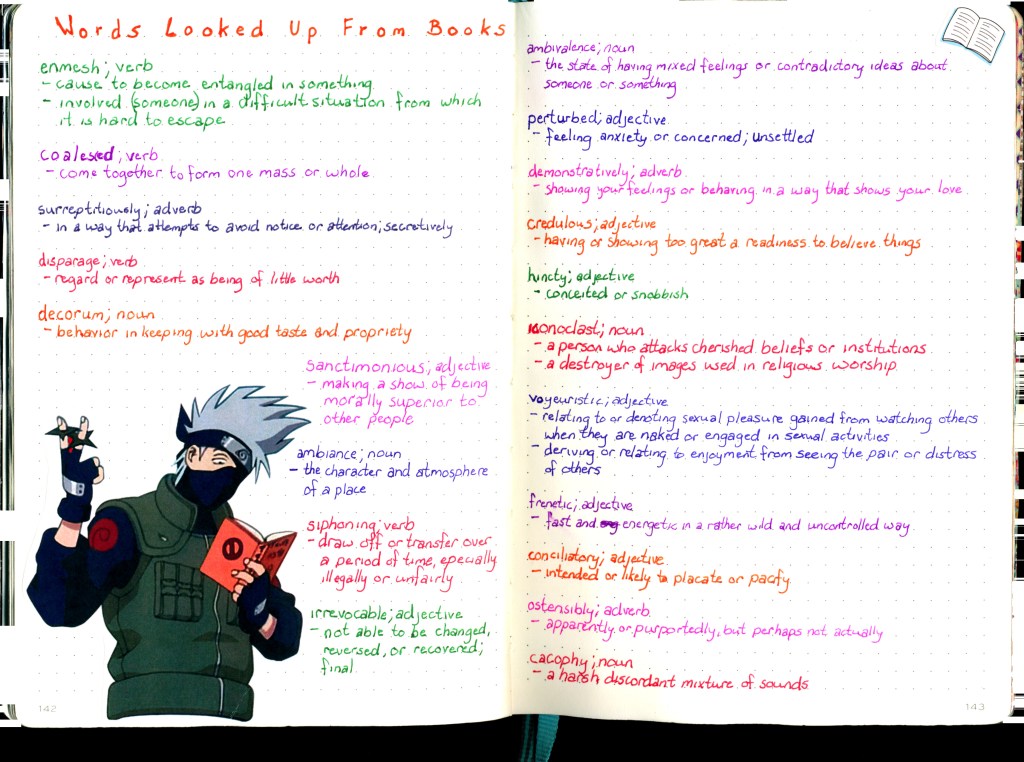 Words Looked Up From Books
enmesh; verb
- cause to become entangled in something
- involved (someone) in a difficult situation from which
it is hard to escape
coalesed; verb
- come together to form one mass or whole
surreptitiously; adverb
- in a way that attempts to avoid notice or attention; secretively
disparage; verb
- regard or represent as being of little worth
decorum; noun
- behavior in keeping with good taste and propriety
sanctimonious; adjective
- making a show of being
morally superior to
other people
ambiance; noun
- the character and atmosphere
of a place
siphoning; verb
- draw off or transfer over
a period of time, epecially
illegally or unfairly
irrevocable; adjective
- not able to be changed,
reversed, or recovered;
final
142
ambivalence; noun
- the state of having mixed feelings or contradictory ideas about
someone or something
perturbed; adjective
- feeling anxiety or concerned; unsettled
demonstratively; adverb
- showing your feelings or behaving in a way that shows your love
credulous; adjective
- having or showing too great a readiness to believe things
hincty; adjective
- conceited or snobbish
iconoclast; noun
- a person who attacks cherished beliefs or institutions
- a destroyer of images used in religious worship
voyeuristic; adjective
- relating to or denoting sexual pleasure gained from watching others
when they are naked or engaged in sexual activities
- deriving or relating to enjoyment from seeing the pair or distress
of others
frenetic; adjective
- fast and energetic in a rather wild and uncontrolled way
conciliatory; adjective
- intended or likely to placate or pacify
ostensibly; adverb
- apparently or purportedly, but perhaps not actually
cacophy; noun
- a harsh discordant mixture of sounds
143